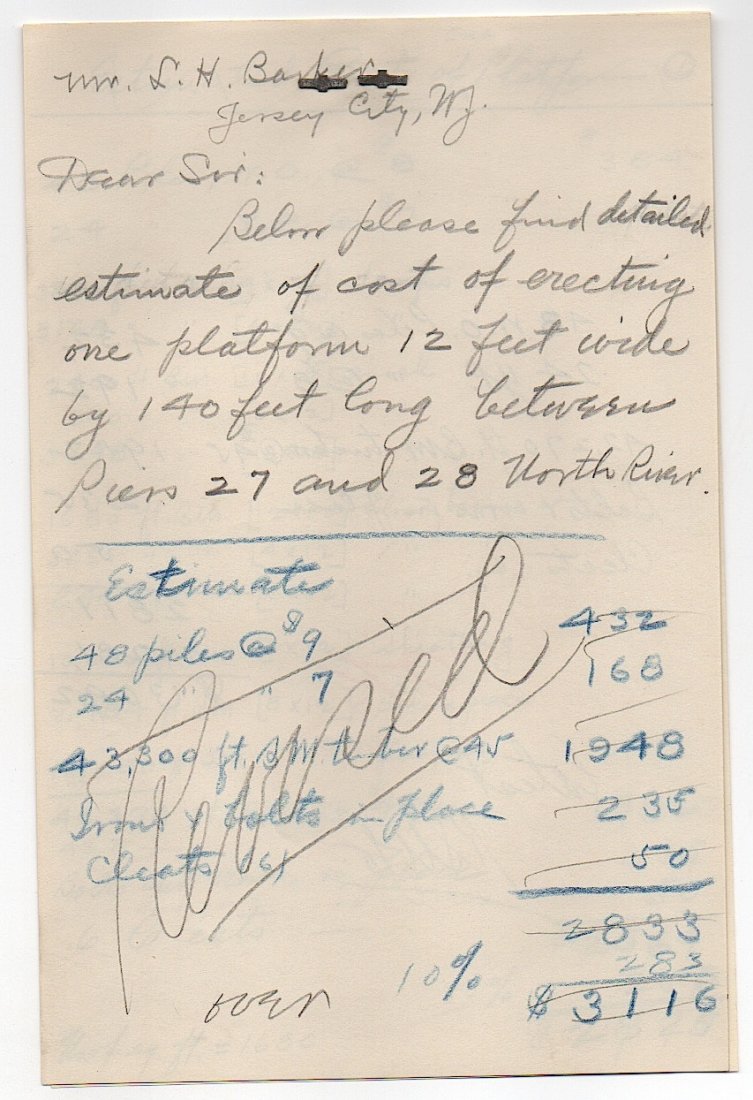 Mr. S. H. Barker
Jersey City, NJ.
Dear Sir:
Below please find detailed
estimate of cost of erecting
one platform 12 feet wide
by 140 feet long between
Piers 27 and 28 North River.
Estimate
48 piles @ $9 432
24 " " 7 168
43,300 ft. B.M. timber @ 45 1948
Irons & bolts in place 235
Cleats (6) 50
2833
10% 283
$ 3116
Revised
over